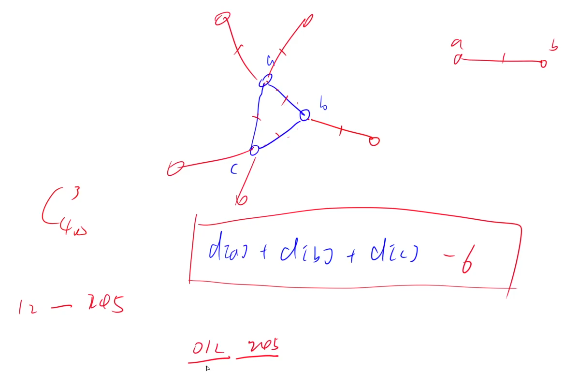 a
b
a
b
c
C_{40}^3
d(a) + d(b) + d(c) - 6
12 - 205
012 205